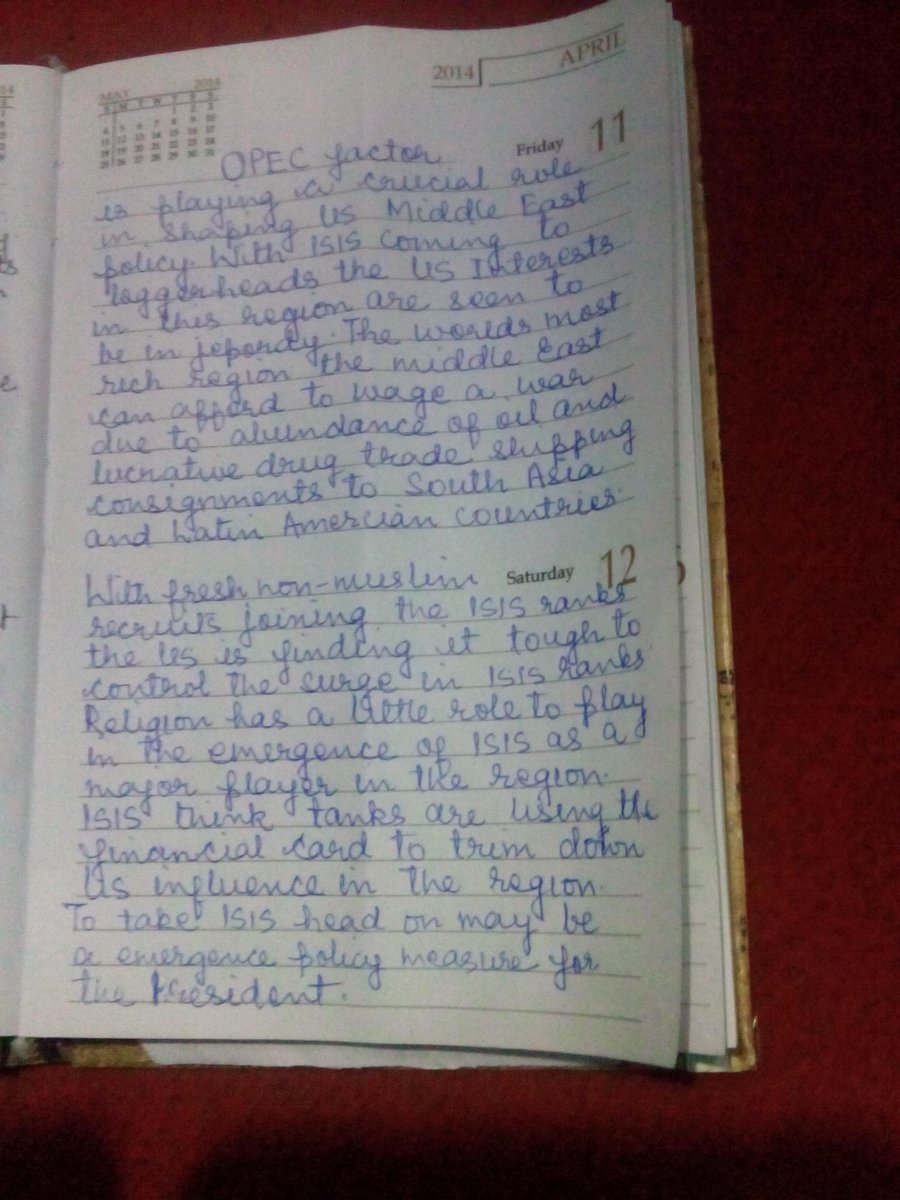 2014 APRIL
MAY 2014
S M T W T F S
1 2 3
4 5 6 7 8 9 10
11 12 13 14 15 16 17
18 19 20 21 22 23 24
25 26 27 28 29 30 31
Friday 11
OPEC factor
is playing a crucial role
in shaping US Middle East
policy. With ISIS coming to
loggerheads the US Interests
in this region are seen to
be in jepordy. The worlds most
rich region the middle East
can afford to wage a war
due to abundance of oil and
lucrative drug trade shipping
consignments to South Asia
and Latin Amercian countries.
Saturday 12
With fresh non-muslim
recruits joining the ISIS ranks
the US is finding it tough to
control the surge in ISIS ranks.
Religion has a little role to play
in the emergence of ISIS as a
major player in the region.
ISIS think tanks are using the
financial card to trim down
US influence in the region.
To take ISIS head on may be
a emergence policy measure for
the President.